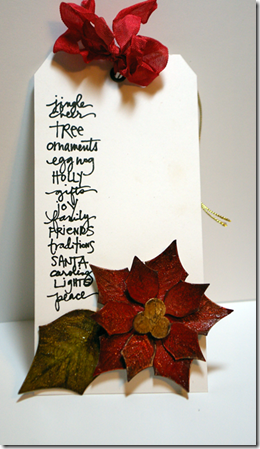 jingle
cheer
TREE
ornaments
eggnog
HOLLY
gifts
joy
family
FRIENDS
traditions
SANTA
caroling
LIGHTS
peace